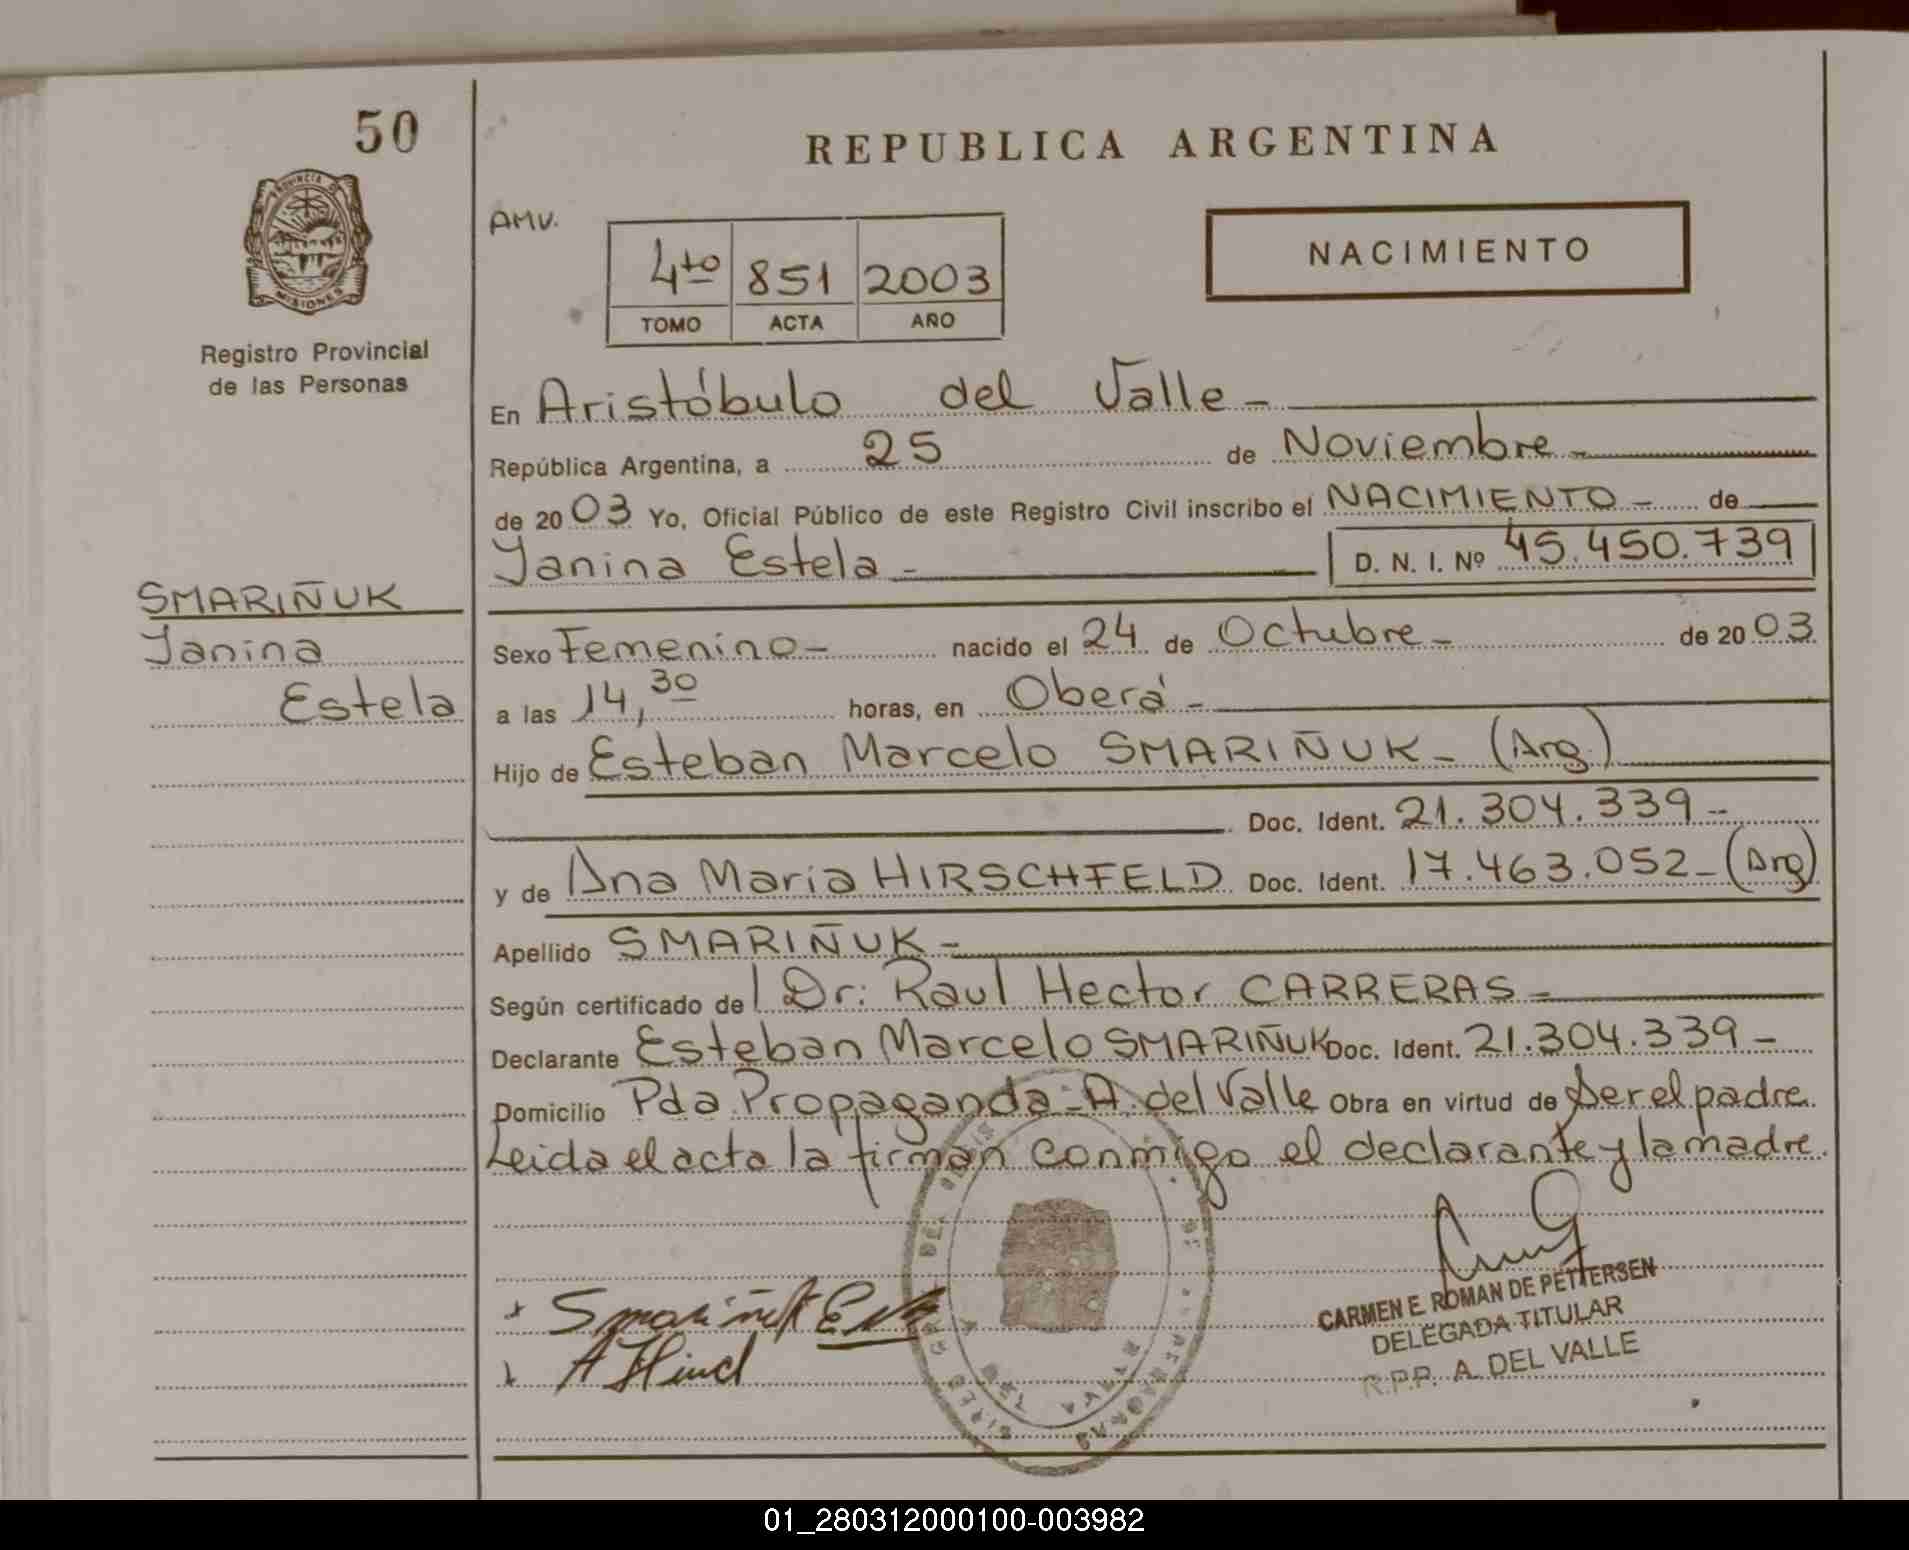 50
PROVINCIA DE
MISIONES
Registro Provincial
de las Personas
SMARIÑUK
Yanina
Estela
REPUBLICA ARGENTINA
AMV.
4to 851 2003
TOMO ACTA AÑO
NACIMIENTO
En Aristóbulo del Valle -
República Argentina, a 25 de Noviembre -
de 2003 Yo, Oficial Público de este Registro Civil inscribo el NACIMIENTO - de
Yanina Estela - D. N. I. Nº 45.450.739
Sexo Femenino - nacido el 24 de Octubre - de 2003
a las 14,30 horas, en Oberá -
Hijo de Esteban Marcelo SMARIÑUK - (Arg.)
Doc. Ident. 21.304.339 -
y de Ana Maria HIRSCHFELD Doc. Ident. 17.463.052 - (Arg)
Apellido SMARIÑUK -
Según certificado del Dr: Raul Hector CARRERAS -
Declarante Esteban Marcelo SMARIÑUK Doc. Ident. 21.304.339 -
Domicilio Pda Propaganda - A. del Valle Obra en virtud de ser el padre.
Leida el acta la firman conmigo el declarante y la madre.
CARMEN E. ROMAN DE PETTERSEN
DELEGADA TITULAR
R.P.P. A. DEL VALLE
01_280312000100-003982